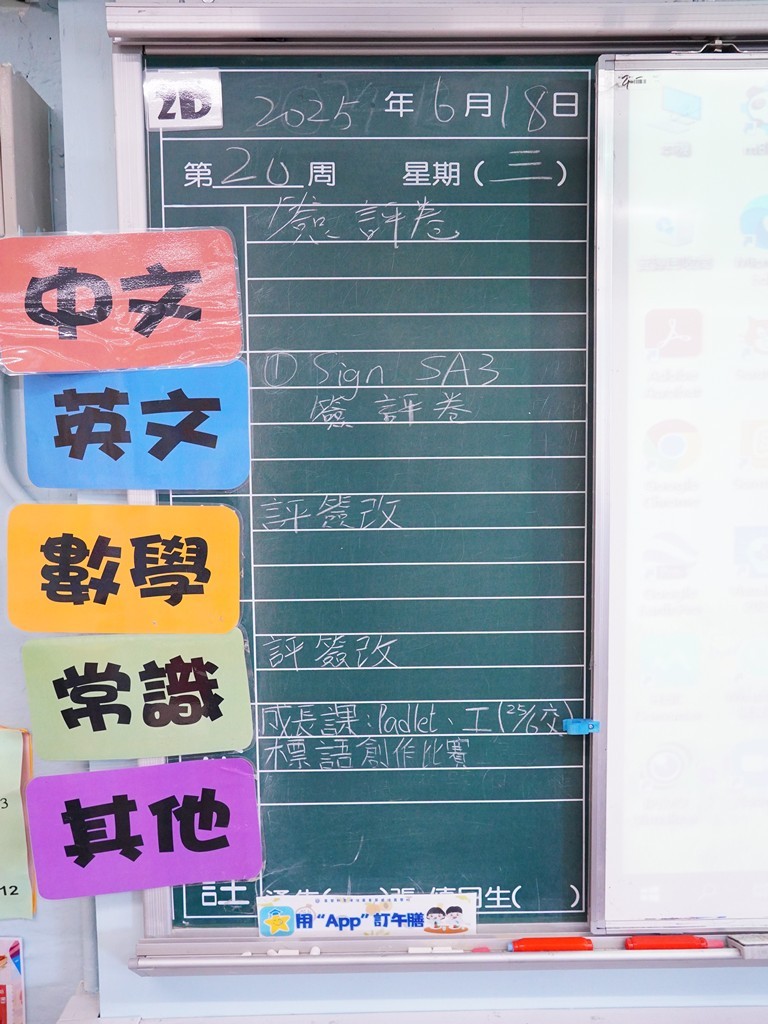 2D 2025年6月18日
第20周 星期(三)
中文
簽評卷
英文
① Sign SA3
簽評卷
數學
評簽改
常識
評簽改
其他
成長課:Padlet、工(25/6交)
標語創作比賽
註 通告( )張 值日生( )
用“App”訂午膳
3
12